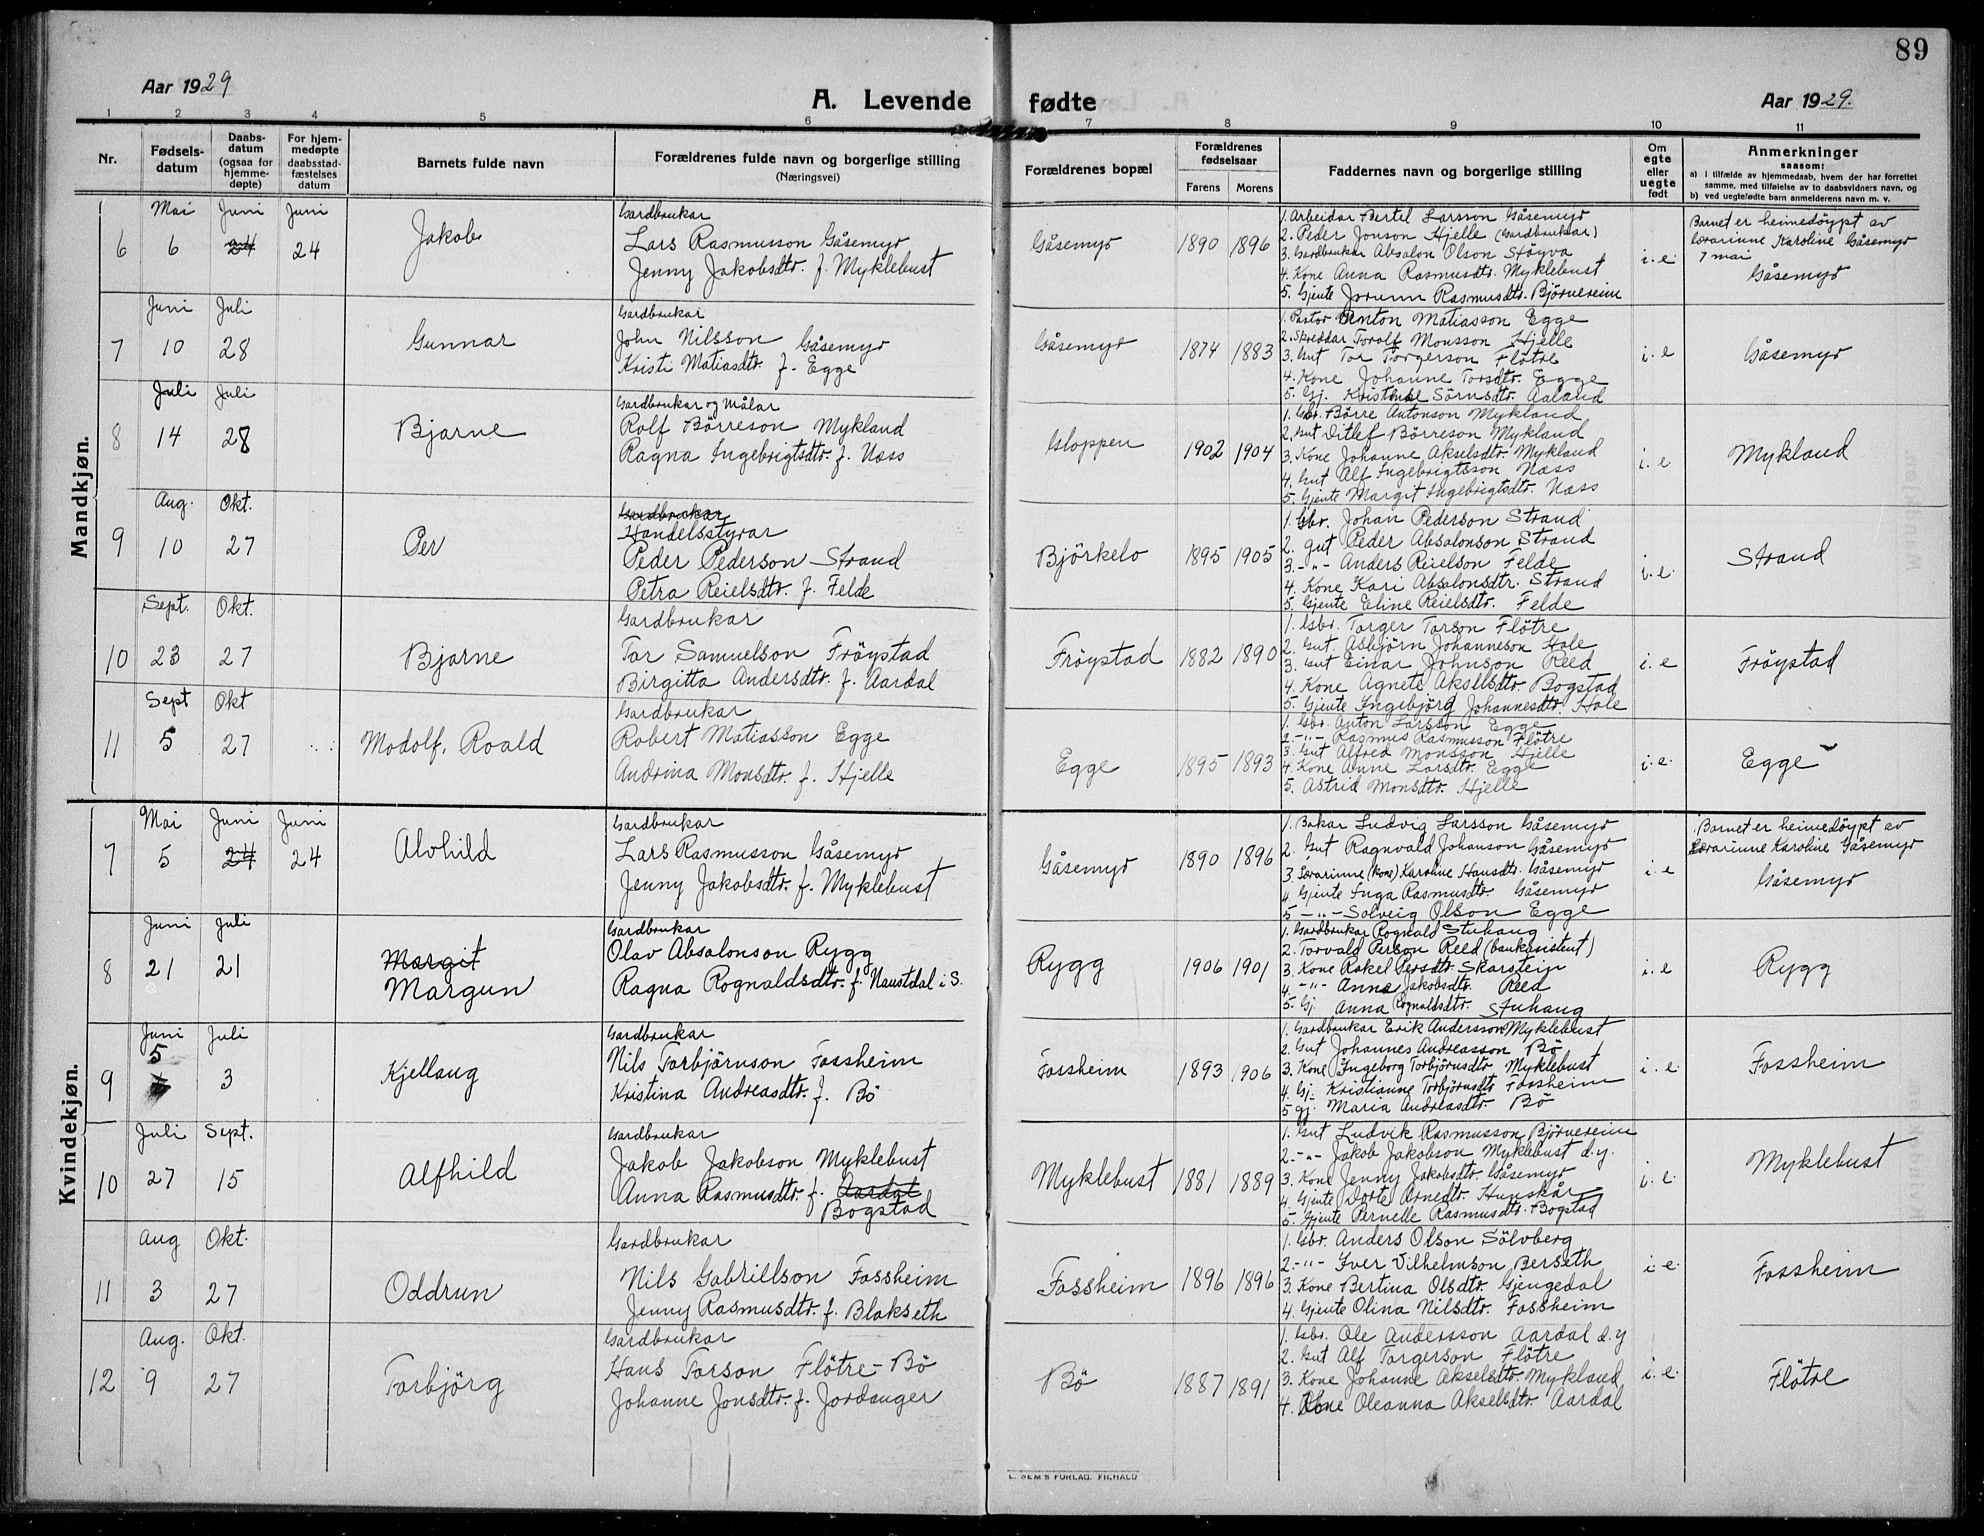 89
Aar 1929
A. Levende fødte
Aar 1929.
1 2 3 4 5 6 7 8 9 10 11
Nr.
Fødselsdatum
Daabsdatum (ogsaa for hjemmedøpte)
For hjemmedøpte daabsstadfæstelses datum
Barnets fulde navn
Forældrenes fulde navn og borgerlige stilling (Næringsvei)
Forældrenes bopæl
Forældrenes fødselsaar
Farens Morens
Faddernes navn og borgerlige stilling
Om egte eller uegte født
Anmerkninger
saasom:
a) i tilfælde av hjemmedaab, hvem der har forrettet samme, med tilføielse av to daabsvidners navn, og
b) ved uegtefødte barn anmelderens navn m. v.
Mandkjøn.
6
Mai 6
Juni 24
Juni 24
Jakob
Gardbrukar
Lars Rasmusson Gåsemyr
Jenny Jakobsdtr. f. Myklebust
Gåsemyr
1890 1896
1. Arbeidar Bertel Larsson Gåsemyr
2. Peder Jonson Hjelle (Gardbrukar)
3. Gardbrukar Absalon Olson Støyva
4. Kone Anna Rasmusdtr. Myklebust
5. Gjente Jorunn Rasmusdtr. Bjørnereim
i. e.
Barnet er heimedøypt av
lærarinne Karoline Gåsemyr
7 mai
Gåsemyr
7
Juni 10
Juli 28
Gunnar
Gardbrukar
John Nilsson Gåsemyr
Kristi Matiasdtr. f. Egge
Gåsemyr
1874 1883
1. Pastor Anton Matiasson Egge
2. Skreddar Torolf Monsson Hjelle
3. Gut Tor Torgerson Flötre
4. Kone Johanne Torsdtr. Egge
5. Gj. Kristine Sörnsdtr. Aaland
i. e
Gåsemyr
8
Juli 14
Juli 28
Bjarne
Gardbrukar og Målar
Rolf Börreson Mykland
Ragna Ingebrigtsdtr. f. Næss
Gloppen
1902 1904
1. Gbr. Börre Antonson Mykland
2. Gut Ditlef Börreson Mykland
3. Kone Johanne Akselsdtr Mykland
4. Gut Alf Ingebrigtsson Næss
5. Gjente Margit Ingebrigtsdtr. Næss
i. e
Mykland
9
Aug. 10
Okt. 27
Per
Gardbrukar
Handelsstyrar
Peder Pederson Strand
Petra Reielsdtr. f. Felde
Björkelo
1895 1905
1. Gbr. Johan Pederson Strand
2. gut Peder Absalonson Strand
3. -"- Anders Reielson Felde
4. Kone Kari Absalonsdtr. Strand
5. Gjente Eline Reielsdtr. Felde
i. e.
Strand
10
Sept. 23
Okt. 27
Bjarne
Gardbrukar
Tor Samuelson Fröystad
Birgitta Andersdtr. f. Aardal
Fröystad
1882 1890
1. Gbr. Torger Torson Flötre
2. Gut. Asbjörn Johanneson Hole
3. Gut Einar Johnson Reed
4. Kone Agnete Akselsdtr. Bogstad
5. Gjente Ingebjörg Johannesdtr. Hole
i. e
Fröystad
11
Sept 5
Okt 27
Modolf, Roald
Gardbrukar
Robert Matiasson Egge
Andrina Monsdtr. f. Hjelle
Egge
1895 1893
1. Gbr. Anton Larsson Egge
2. -"- Rasmus Rasmusson Flötre
3. Gut Alfred Monsson Hjelle
4. Kone Anne Larsdtr. Egge
5. Astrid Monsdtr. Hjelle
i. e.
Egge
Kvindekjøn.
7
Mai 5
Juni 24
Juni 24
Alvhild
Gardbrukar
Lars Rasmusson Gåsemyr
Jenny Jakobsdtr. f. Myklebust
Gåsemyr
1890 1896
1. Bakar Ludvig Larsson Gåsemyr
2. Gut Ragnvald Johanson Gåsemyr
3. Lærarinne (kone) Karoline Hansdtr. Gåsemyr
4. Gjente Inga Rasmusdtr. Gåsemyr
5 -"- Solveig Olson Egge
i. e
Barnet er heimedöypt av
Lærarinne Karoline Gåsemyr
Gåsemyr
8
Juni 21
Juli 21
Margit
Margun
Gardbrukar
Olav Absalonson Rygg
Ragna Rognaldsdtr. f. Naustdal i S.
Rygg
1906 1901
1. Gardbrukar Rognald Stuhaug
2. Torvald Person Reed (bankasistent)
3. Kone Rakel Persdtr. Skarstein
4. -"- Anna Jakobsdtr. Reed
5. Gj. Anna Rognaldsdtr. Stuhaug
i. e
Rygg
9
Juni 5
Juli 3
Kjellaug
Gardbrukar
Nils Torbjörnson Fossheim
Kristina Andreasdtr. f. Bö
Fossheim
1893 1906
1. Gardbrukar Erik Andersson Myklebust
2. Gut Johannes Andreasson Bö
3. Kone Ingeborg Torbjörnsdtr Myklebust
4. Gj. Kristianne Torbjörnsdtr Fossheim
5 gj. Maria Andreasdtr. Bö
i. e.
Fossheim
10
Juli 27
Sept. 15
Alfhild
Gardbrukar
Jakob Jakobson Myklebust
Anna Rasmusdtr. f. Aardal
Bogstad
Myklebust
1881 1889
1. Gut Ludvik Rasmusson Björnereim
2. -"- Jakob Jakobson Myklebust d.y.
3. Kone Jenny Jakobsdtr. Gåsemyr
4. Gjente Dorte Arnedtr. Hunskår
5. Gjente Pernelle Rasmusdtr. Bogstad
i. e.
Myklebust
11
Aug 3
Okt. 27
Oddrun
Gardbrukar
Nils Gabrillson Fossheim
Jenny Rasmusdtr. f. Blakseth
Fossheim
1896 1896
1. Gbr. Anders Olson Sölvberg
2. -"- Iver Vilhelmson Berseth
3. Kone Bertina Olsdtr. Gjengedal
4. Gjente Olina Nilsdtr. Fossheim
i. e.
Fossheim
12
Aug. 9
Okt. 27
Torbjörg
Gardbrukar
Hans Torson Flötre - Bö
Johanne Jonsdtr. f. Jordanger
Bö
1887 1891
1. Gbr. Ole Andersson Aardal d.y
2. Gut Alf Torgerson Flötre
3. Kone Johanne Akselsdtr. Mykland
4. Kone Oleanna Akselsdtr. Aardal
i. e.
Flötre
E. SEM'S FORLAG. FR.HALD